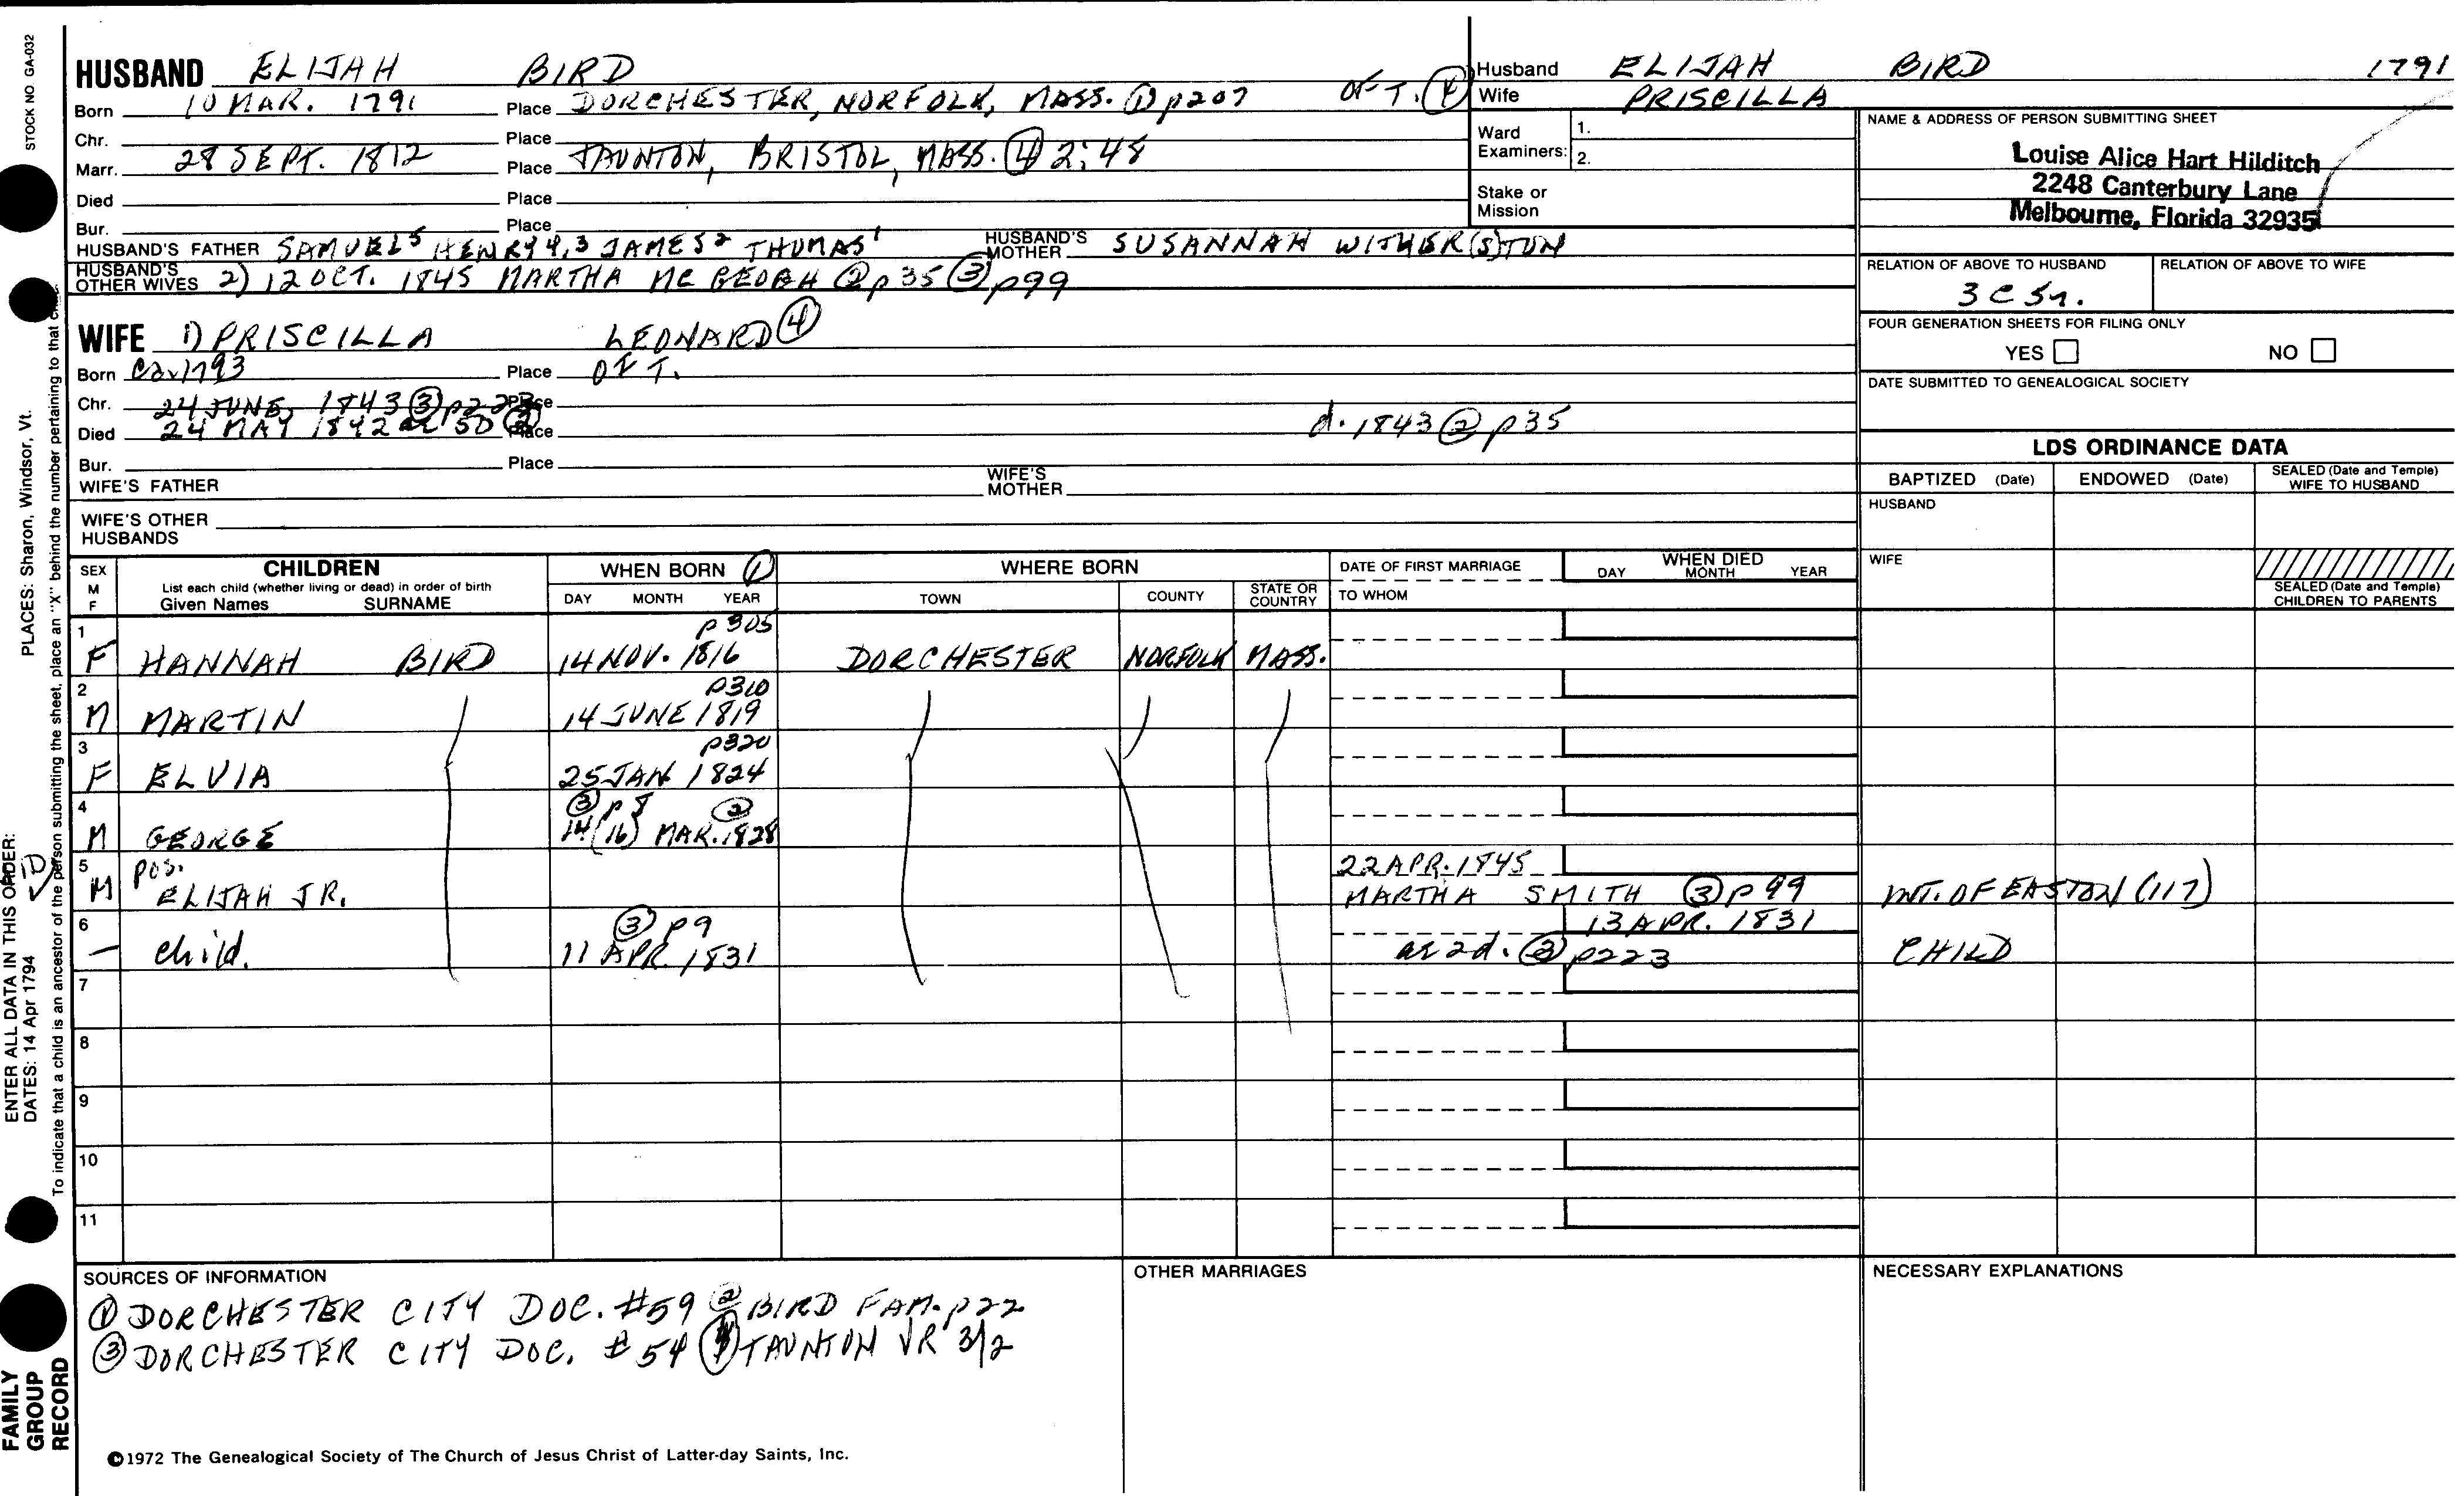 STOCK NO. GA-032
HUSBAND ELIJAH BIRD
Born 10 MAR. 1791 Place DORCHESTER, NORFOLK, MASS. ① p207 OF T. ④
Chr. Place
Marr. 28 SEPT. 1812 Place TAUNTON, BRISTOL, MASS. ④ 2:48
Died Place
Bur. Place
HUSBAND'S FATHER SAMUEL5 HENRY4,3 JAMES2 THOMAS1 HUSBAND'S MOTHER SUSANNAH WITHER(S)TON
HUSBAND'S OTHER WIVES 2) 12 OCT. 1845 MARTHA MC GEOGH ② p35 ③ p99
WIFE 1) PRISCILLA LEONARD ④
Born Ca. 1793 Place OF T.
Chr. 24 JUNE, 1843 ③ p223 Place
Died 24 MAY 1842 ae 50 ② Place d. 1843 ② p35
Bur. Place
WIFE'S FATHER WIFE'S MOTHER
WIFE'S OTHER HUSBANDS
Husband ELIJAH BIRD 1791
Wife PRISCILLA
Ward Examiners: 1.
2.
Stake or Mission
NAME & ADDRESS OF PERSON SUBMITTING SHEET
Louise Alice Hart Hilditch
2248 Canterbury Lane
Melbourne, Florida 32935
RELATION OF ABOVE TO HUSBAND RELATION OF ABOVE TO WIFE
3 C 5r.
FOUR GENERATION SHEETS FOR FILING ONLY
YES NO
DATE SUBMITTED TO GENEALOGICAL SOCIETY
LDS ORDINANCE DATA
BAPTIZED (Date) ENDOWED (Date) SEALED (Date and Temple) WIFE TO HUSBAND
HUSBAND
WIFE
SEALED (Date and Temple) CHILDREN TO PARENTS
SEX M F CHILDREN WHEN BORN ① WHERE BORN DATE OF FIRST MARRIAGE WHEN DIED
List each child (whether living or dead) in order of birth
Given Names SURNAME DAY MONTH YEAR TOWN COUNTY STATE OR COUNTRY TO WHOM DAY MONTH YEAR
1 p305
F HANNAH BIRD 14 NOV. 1816 DORCHESTER NORFOLK MASS.
2 p310
M MARTIN 14 JUNE 1819
3 p320
F ELVIA 25 JAN 1824
4 ③ p8 ②
M GEORGE 14 (16) MAR. 1828
5 pos. 22 APR. 1845
M ELIJAH JR. MARTHA SMITH ③ p99 INT. OF EASTON (117)
6 ③ p9 13 APR. 1831
— child. 11 APR. 1831 ae 2d. ③ p223 CHILD
7
8
9
10
11
SOURCES OF INFORMATION
① DORCHESTER CITY DOC. #59 ② BIRD FAM. p22
③ DORCHESTER CITY DOC. #54 ④ TAUNTON VR 3/2
OTHER MARRIAGES
NECESSARY EXPLANATIONS
©1972 The Genealogical Society of The Church of Jesus Christ of Latter-day Saints, Inc.
PLACES: Sharon, Windsor, Vt.
ENTER ALL DATA IN THIS ORDER:
DATES: 14 Apr 1794
To indicate that a child is an ancestor of the person submitting the sheet, place an "X" behind the number pertaining to that
FAMILY
GROUP
RECORD